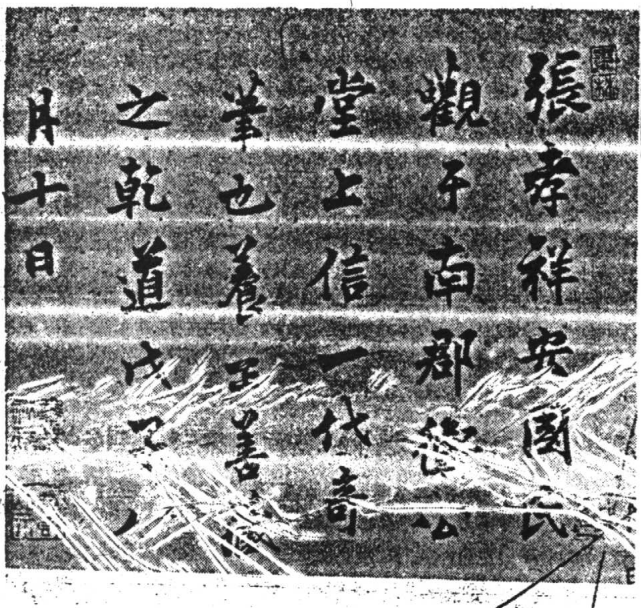 張孝祥安國氏
觀于南郡衛公
堂上信一代奇
筆也養正善藏
之乾道戊子八
月十日